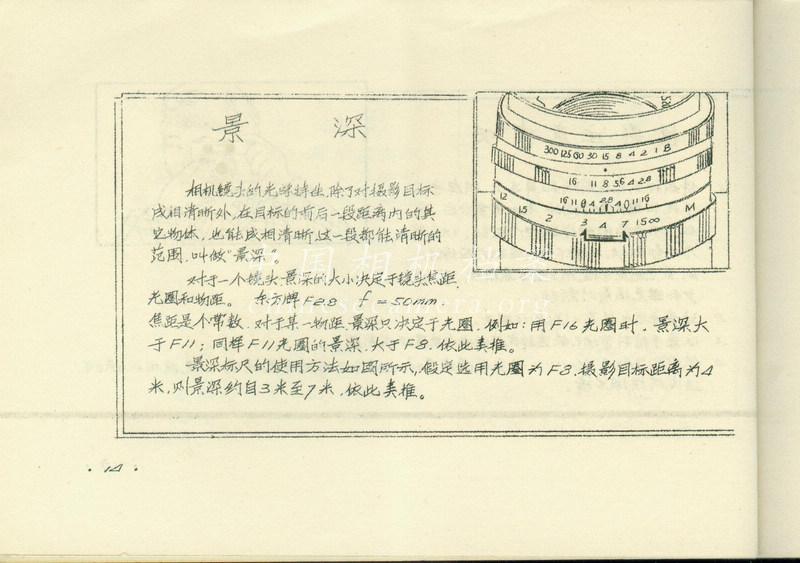 景 深
相机镜头的光学特性,除了对摄影目标
成相清晰外,在目标的前后一段距离内的其
它物体,也能成相清晰,这一段都能清晰的
范围,叫做"景深"。
对于一个镜头,景深的大小决定于镜头焦距、
光圈和物距。 东方牌F2.8 f=50mm.
焦距是个常数,对于某一物距,景深只决定于光圈,例如:用F16光圈时,景深大
于F11;同样F11光圈的景深,大于F8.依此类推。
景深标尺的使用方法如图所示,假定选用光圈为F8,摄影目标距离为4
米,则景深约自3米至7米,依此类推。
300 125 60 30 15 8 4 2 1 B
16 11 8 5.6 4 2.8
16 11 8 4 2.8 4 8 11 16
1.2 1.5 2 3 4 7 15 ∞ M
中国相机档案
·14·